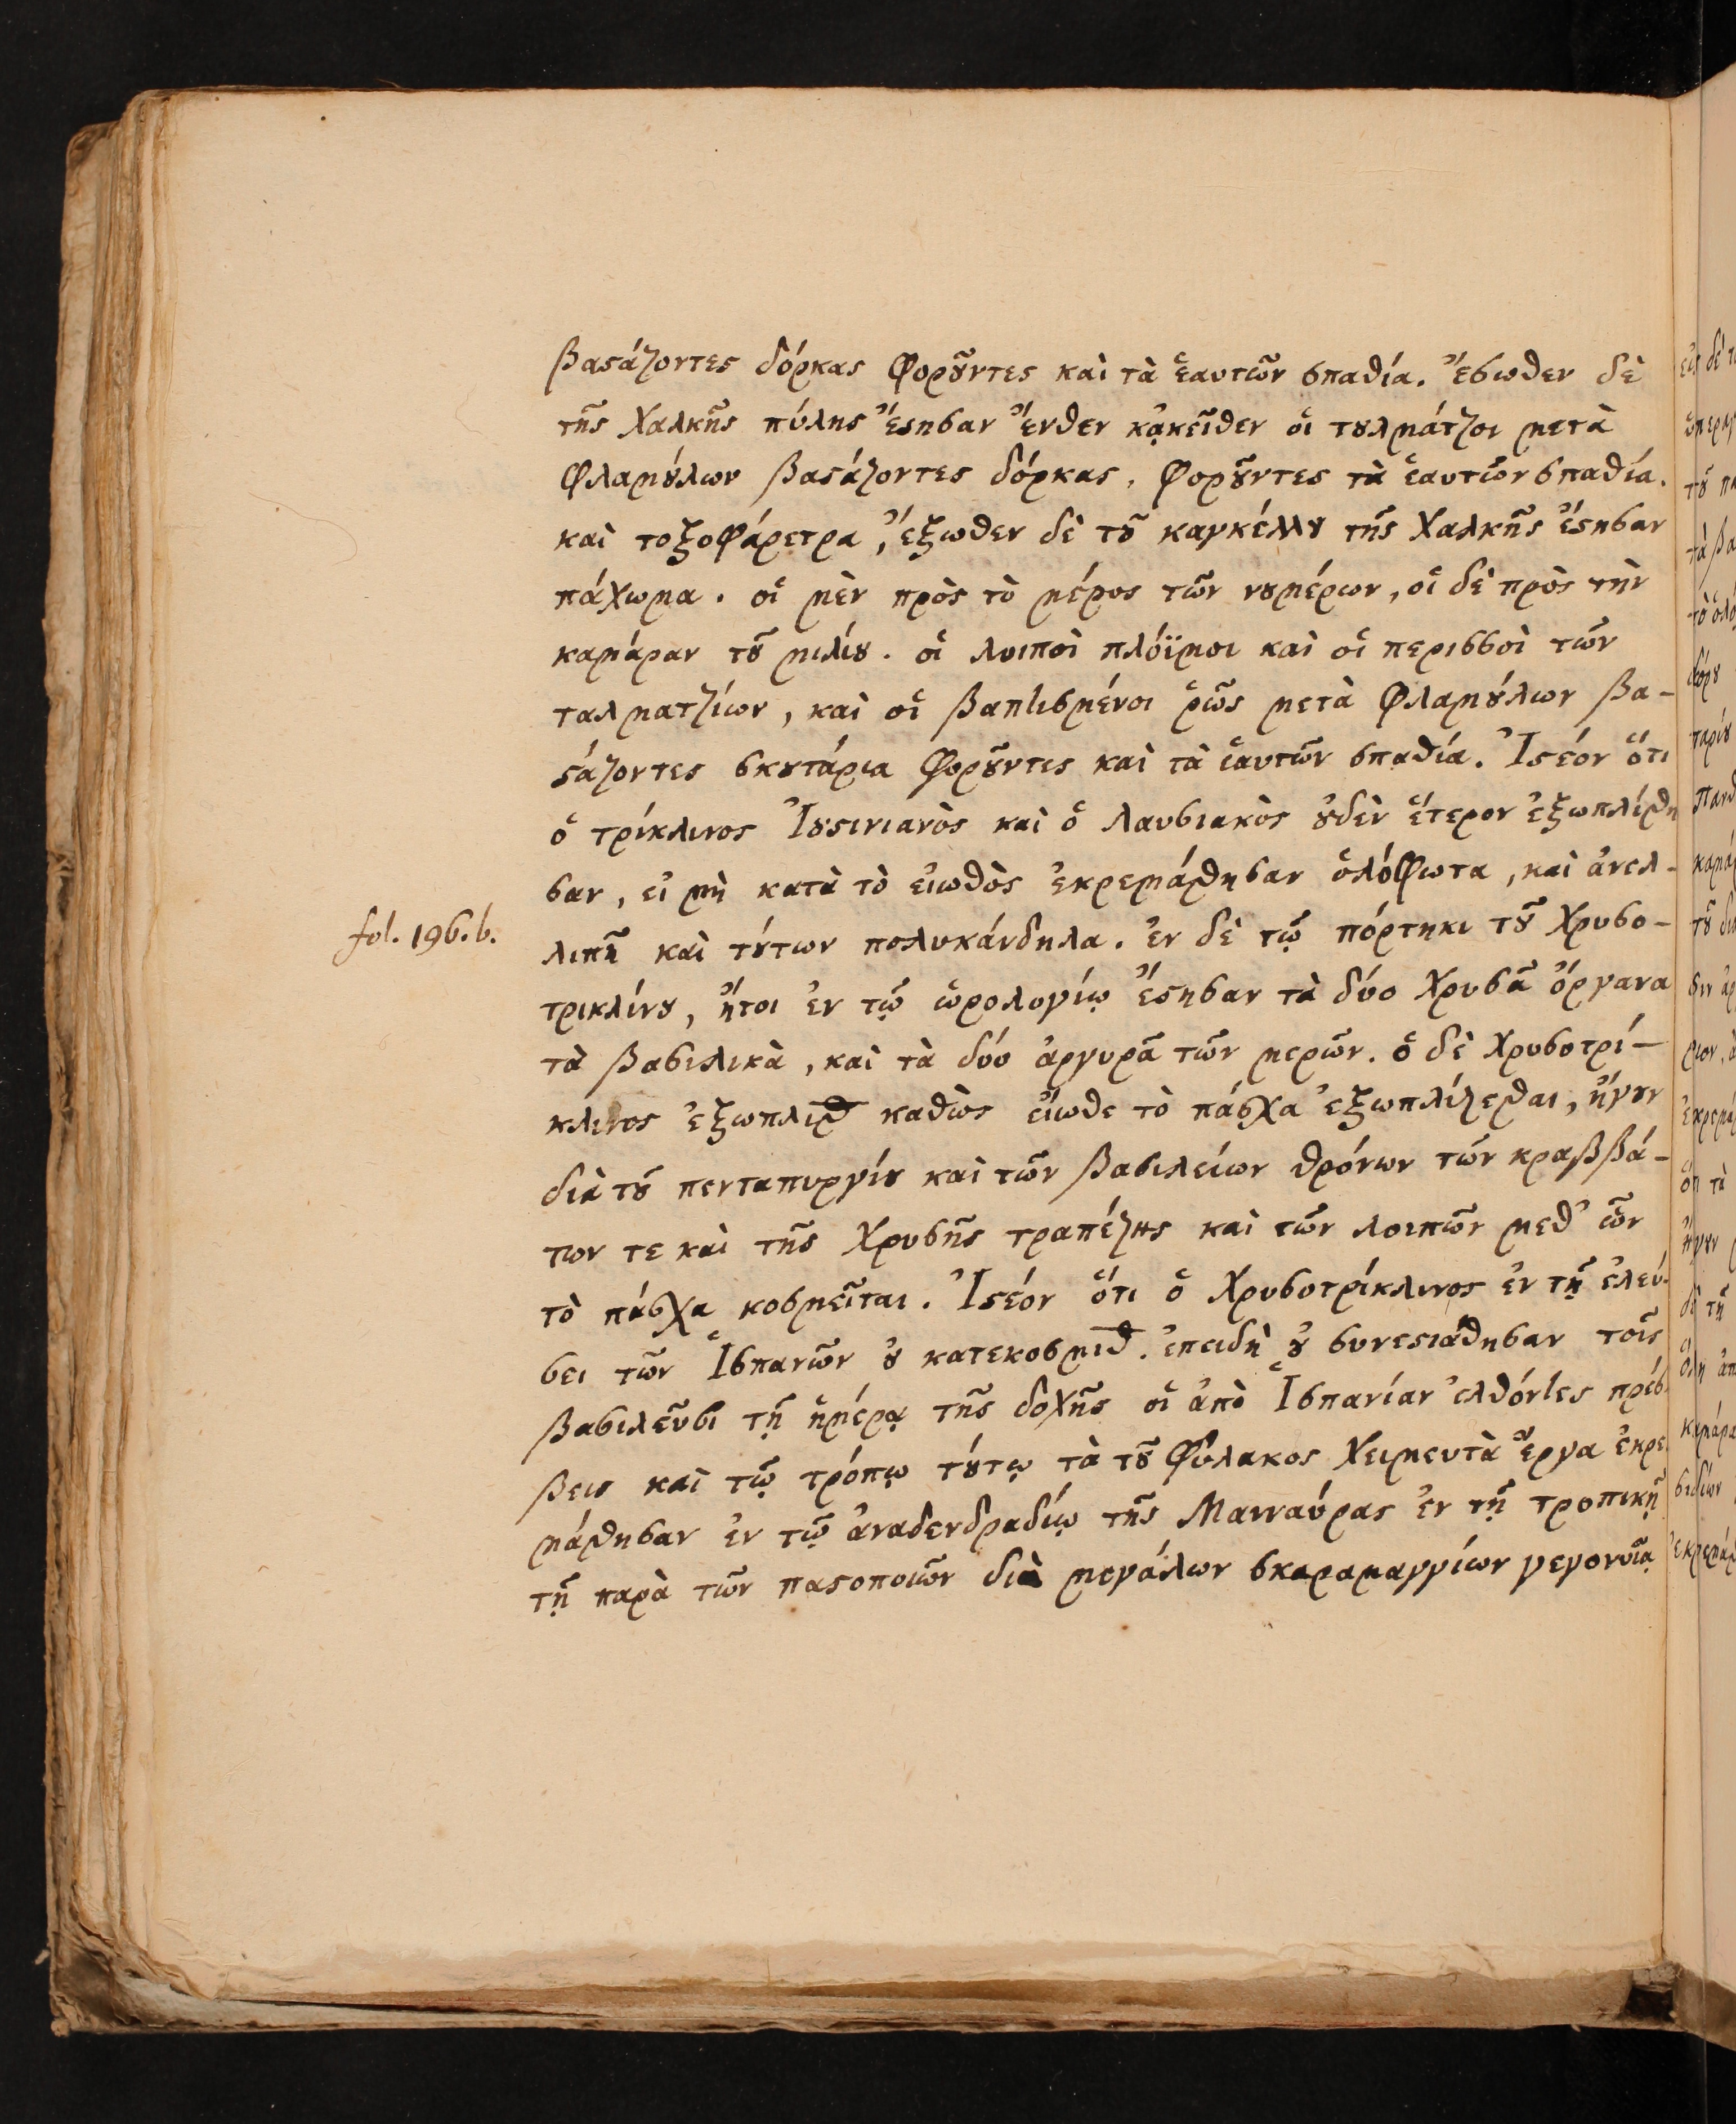 βαστάζοντες δόρκας φοροῦντες καὶ τὰ ἑαυτῶν σπαθία. ἔσωθεν δὲ
τῆς Χαλκῆς πύλης ἔστησαν ἔνθεν κᾀκεῖθεν οἱ τουλμάτζοι μετὰ
φλαμούλων βαστάζοντες δόρκας, φοροῦντες τὰ ἑαυτῶν σπαθία.
καὶ τοξοφάρετρα, ἔξωθεν δὲ τοῦ καγκέλλου τῆς Χαλκῆς ἔστησαν
πάχωμα. οἱ μὲν πρὸς τὸ μέρος τῶν νουμέρων, οἱ δὲ πρὸς τὴν
καμάραν τοῦ μιλίου. οἱ λοιποὶ πλόϊμοι καὶ οἱ περισσοὶ τῶν
ταλματζίων, καὶ οἱ βαπτισμένοι ῥῶς μετὰ φλαμούλων βα-
στάζοντες σκουτάρια φοροῦντες καὶ τὰ ἑαυτῶν σπαθία. Ἰστέον ὅτι
ὁ τρίκλινος Ἰουστινιανὸς καὶ ὁ λαυσιακὸς οὐδὲν ἕτερον ἐξωπλίσθη
σαν, εἰ μὴ κατὰ τὸ εἰωθὸς ἐκρεμάσθησαν ὁλόφωτα, καὶ ἀνελ-
fol. 196. b.
λιπῆ καὶ τούτων πολυκάνδηλα. ἐν δὲ τῷ πόρτηκι τοῦ Χρυσο-
τρικλίνου, ἤτοι ἐν τῷ ὡρολογίῳ ἔστησαν τὰ δύο χρυσᾶ ὄργανα
τὰ βασιλικὰ, καὶ τὰ δύο ἀργυρᾶ τῶν μερῶν. ὁ δὲ Χρυσοτρί-
κλινος ἐξωπλισθ καθὼς εἴωθε τὸ πάσχα ἐξωπλίζεσθαι, ἤγουν
διὰ τοῦ πενταπυργίου καὶ τῶν βασιλείων θρόνων τῶν κραββά-
των τε καὶ τῆς χρυσῆς τραπέζης καὶ τῶν λοιπῶν μεθ' ὧν
τὸ πάσχα κοσμεῖται. Ἰστέον ὅτι ὁ Χρυσοτρίκλινος ἐν τῇ ἐλεύ-
σει τῶν Ἱσπανῶν οὐ κατεκοσμισθ. ἐπειδὴ οὐ συνεστιάθησαν τοῖς
βασιλεῦσι τῇ ἡμέρᾳ τῆς δοχῆς οἱ ἀπὸ Ἱσπανίαν ἐλθόντες πρέσ
βεις καὶ τῷ τρόπῳ τούτῳ τὰ τοῦ φύλακος χειμευτὰ ἔργα ἐκρε
μάσθησαν ἐν τῷ ἀναδενδραδίῳ τῆς Μανναύρας ἐν τῇ τροπικῇ
τῇ παρὰ τῶν παστοποιῶν διὰ μεγάλων σκαραμαγγίων γεγονυῖᾳ